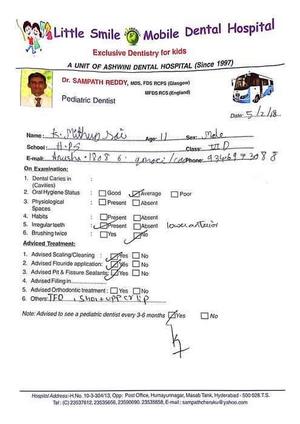 Little Smile Mobile Dental Hospital
Exclusive Dentistry for kids
A UNIT OF ASHWINI DENTAL HOSPITAL (Since 1997)
Dr. SAMPATH REDDY, MDS, FDS RCPS (Glasgow)
MFDS RCS (England)
Pediatric Dentist
Date: 5/2/18
Name: K. Mithun Sai Age: 11 Sex: Male
School: H.P.S Class: VI D
E-mail: Phone:
On Examination:
1. Dental Caries in :
(Cavities)
2. Oral Hygiene Status : Good Average Poor
3. Physiological : Present Absent
Spaces
4. Habits : Present Absent
5. Irregular teeth : Present Absent lower anterior
6. Brushing twice : Yes No
Adviced Treatment:
1. Advised Scaling/Cleaning : Yes No
2. Advised Flouride application: Yes No
3. Advised Pit & Fissure Sealants: Yes No
4. Advised Filling in
5. Advised Orthodontic treatment : Yes No
6. Others: upper lip
Note: Advised to see a pediatric dentist every 3-6 months Yes No
Hospital Address-H.No. 10-3-304/13, Opp: Post Office, Humayunnagar, Masab Tank, Hyderabad - 500 028.T.S.
Tel: (C) 23537612, 23535656, 23590090, 23535858, E-mail: sampathcheruku@yahoo.com